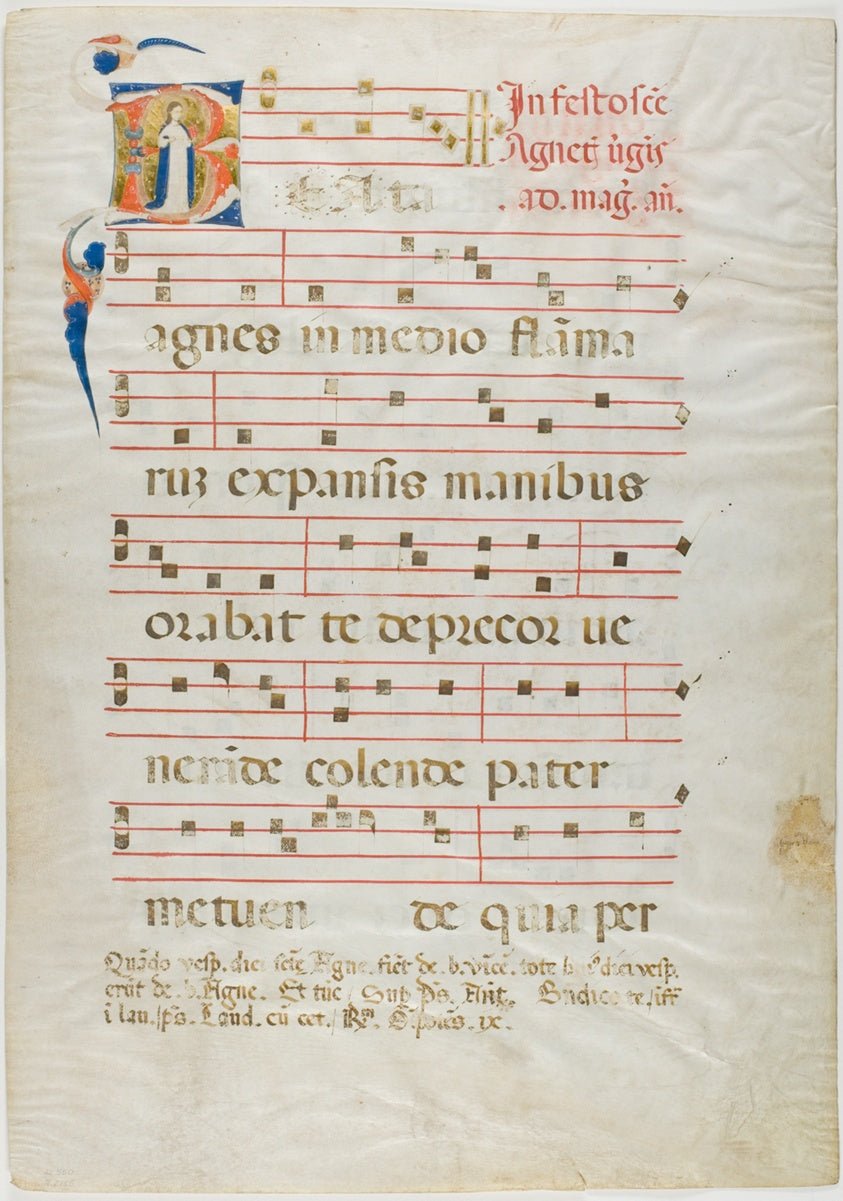 In festo scē
Agnetꝭ ūgīs
. ad. mag̃. añ.
BEAta
agnes in medio flāma
ruʒ expansis manibus
orabat te deprecor ue
nerāde colende pater
metuen de quia per
Quādo vesp. diei scē Agne. fiēt de. b. vīcē. tote vesp.
erūt de. b. Agne. Et tūc Sup p̄s. Añt. Bn̄dico te
i lau. p̄s. Laud. cū cet. ix.